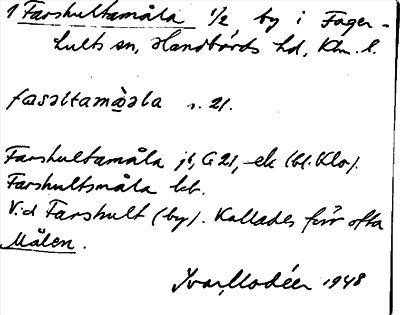 1 Farshultamåla 1/2 by i Fager-
hults sn, Handbörds hd, Klm. l.
s. 21.
Farshultamåla jb, G 21, ek (bl. Klo).
Farshultsmåla kt.
Vid Farshult (by). Kallades förr ofta
Målen.
Ivar Modéer 1948